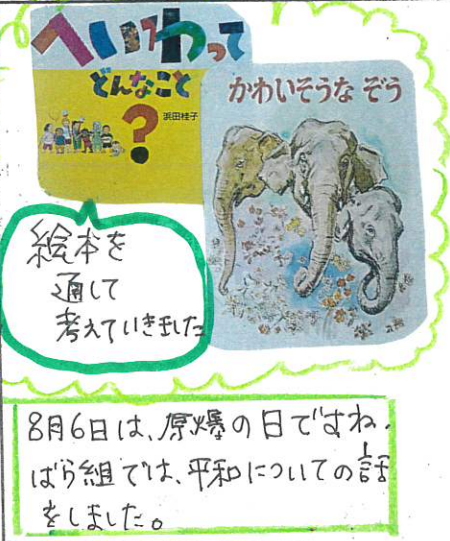 へいわって
どんなこと
?
浜田桂子
かわいそうな ぞう
絵本を
通して
考えていきました
8月6日は、原爆の日ですね。
ばら組では、平和についての話
をしました。